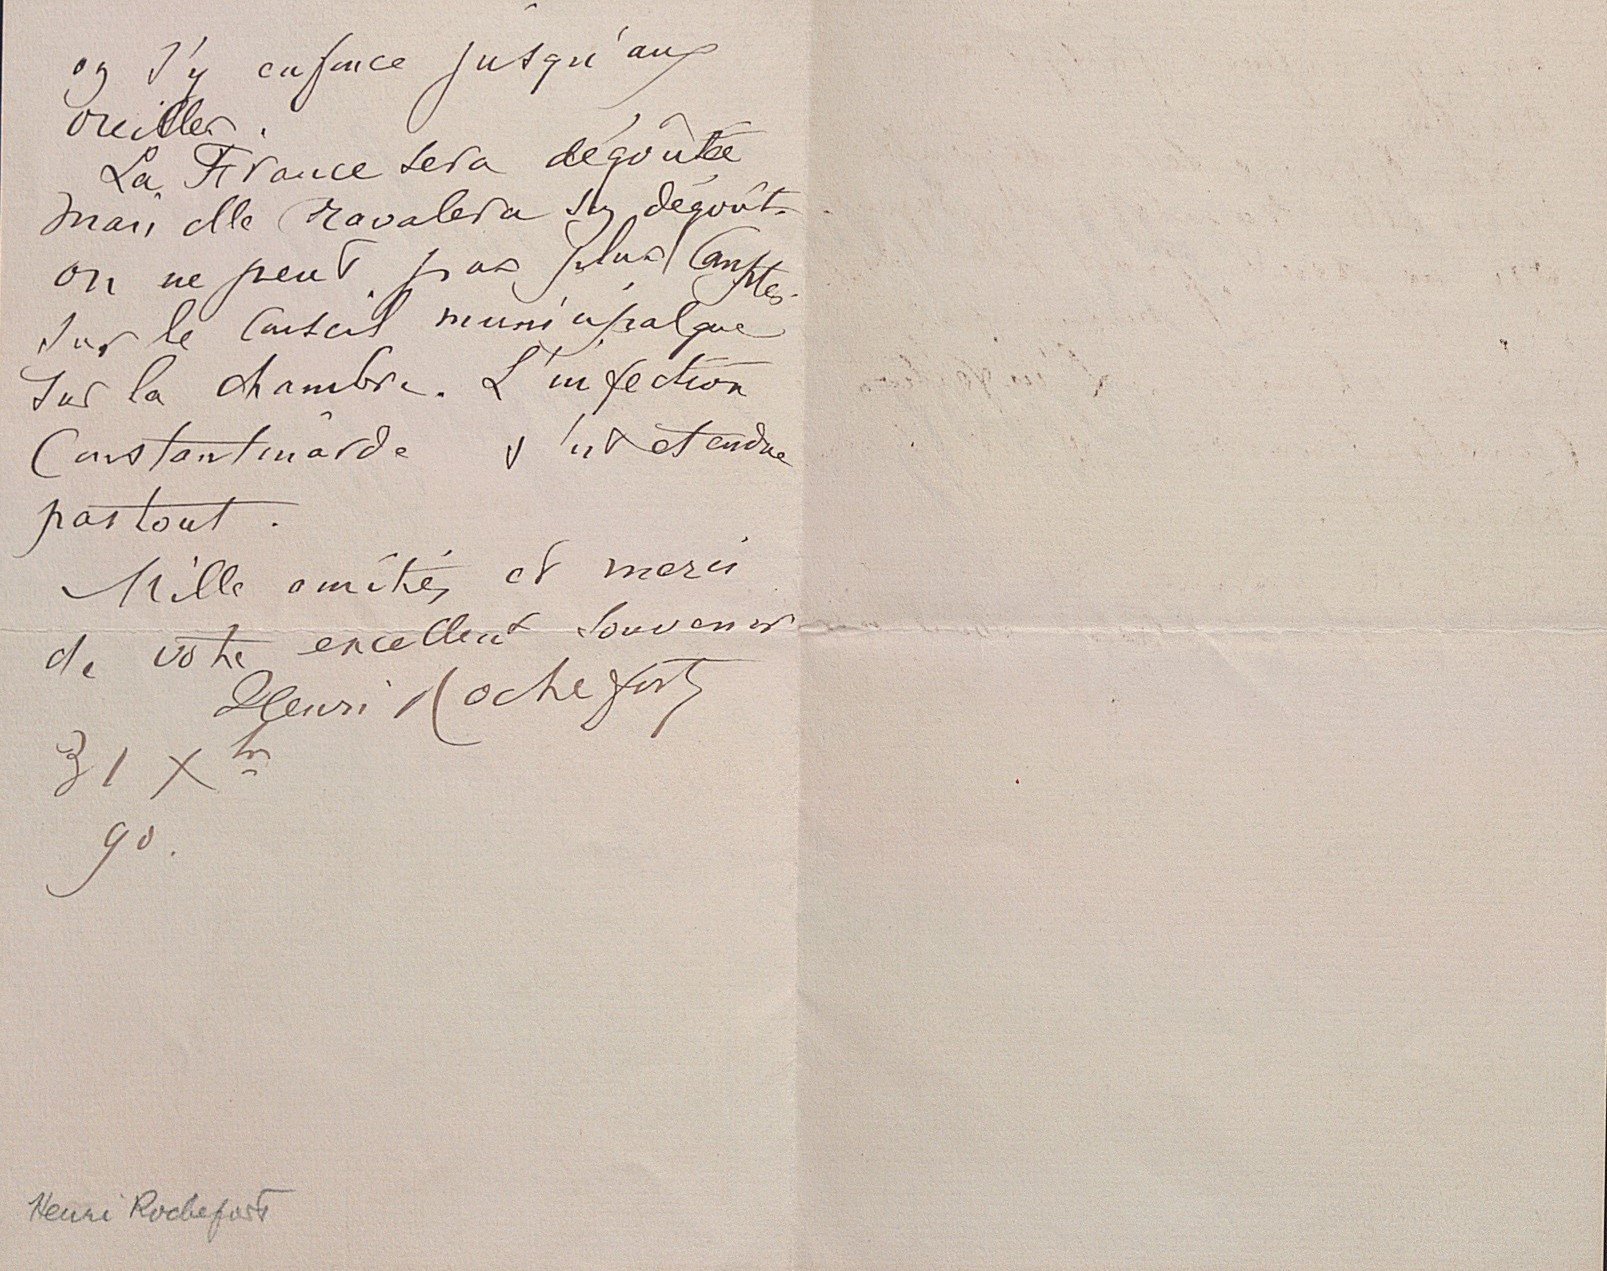 on s'y enfonce jusqu'aux
oreilles.
La France sera dégoûtée
mais elle ravalera son dégoût.
on ne peut pas plus compter
sur le conseil municipal que
sur la chambre. L'infection
Constantinarde s'est etendue
partout.
Mille amitiés et merci
de votre excellent souvenir
Henri Rochefort
31 Xbre
90.
Henri Rochefort